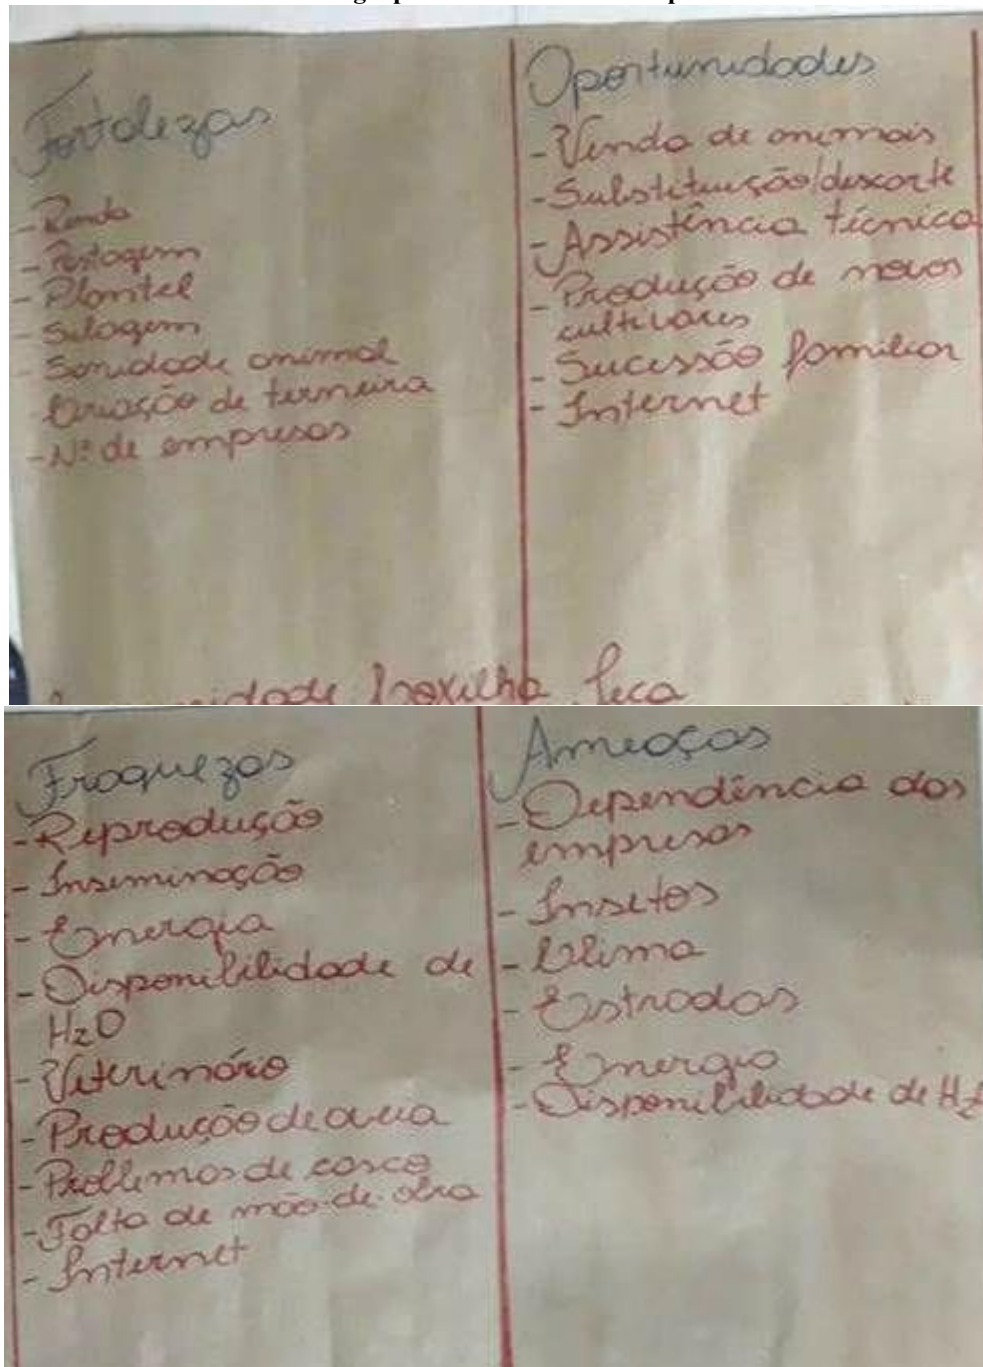 Fortalezas
- Renda
- Pastagem
- Plantel
- Silagem
- Sanidade animal
- Criação de terneira
- Nº de empresas
Oportunidades
- Venda de animais
- Substituição/descarte
- Assistência técnica
- Produção de novos
cultivares
- Sucessão familiar
- Internet
Coxilha Seca
Fraquezas
- Reprodução
- Inseminação
- Energia
- Disponibilidade de
H2O
- Veterinário
- Produção de aveia
- Problemas de casco
- Falta de mão-de-obra
- Internet
Ameaças
- Dependência das
empresas
- Insetos
- Clima
- Estradas
- Energia
- Disponibilidade de H2